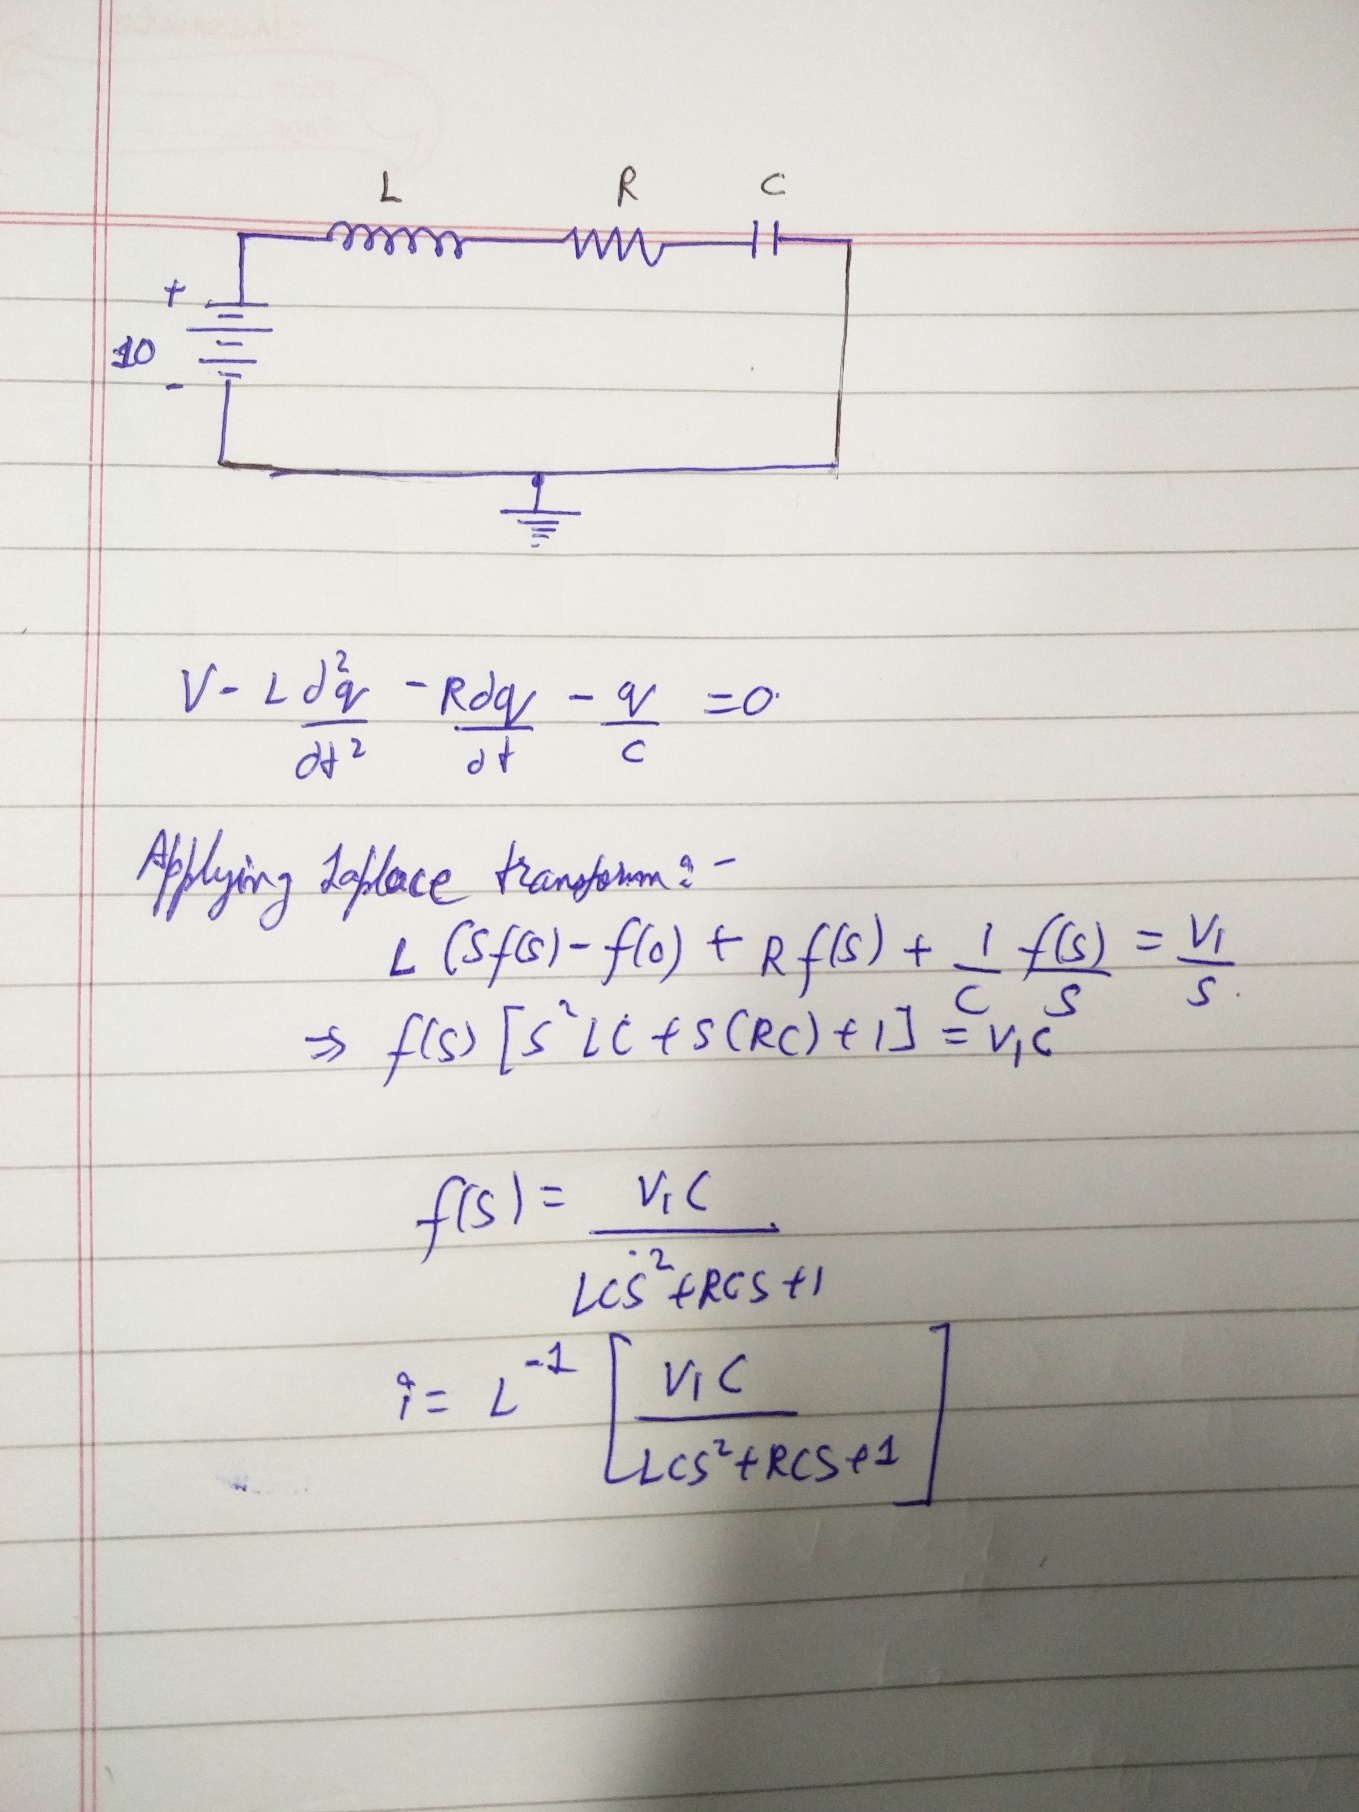 L R C
+
10
-
V - L d²q/dt² - R dq/dt - q/c = 0.
Applying Laplace transform :-
L (Sf(s) - f(0) + R f(s) + 1/C f(s)/S = V₁/S.
⇒ f(s) [S²LC + S(RC) + 1] = V₁C
f(s) = V₁C / LCS² + RCS + 1
i = L⁻¹ [V₁C / LCS² + RCS + 1]